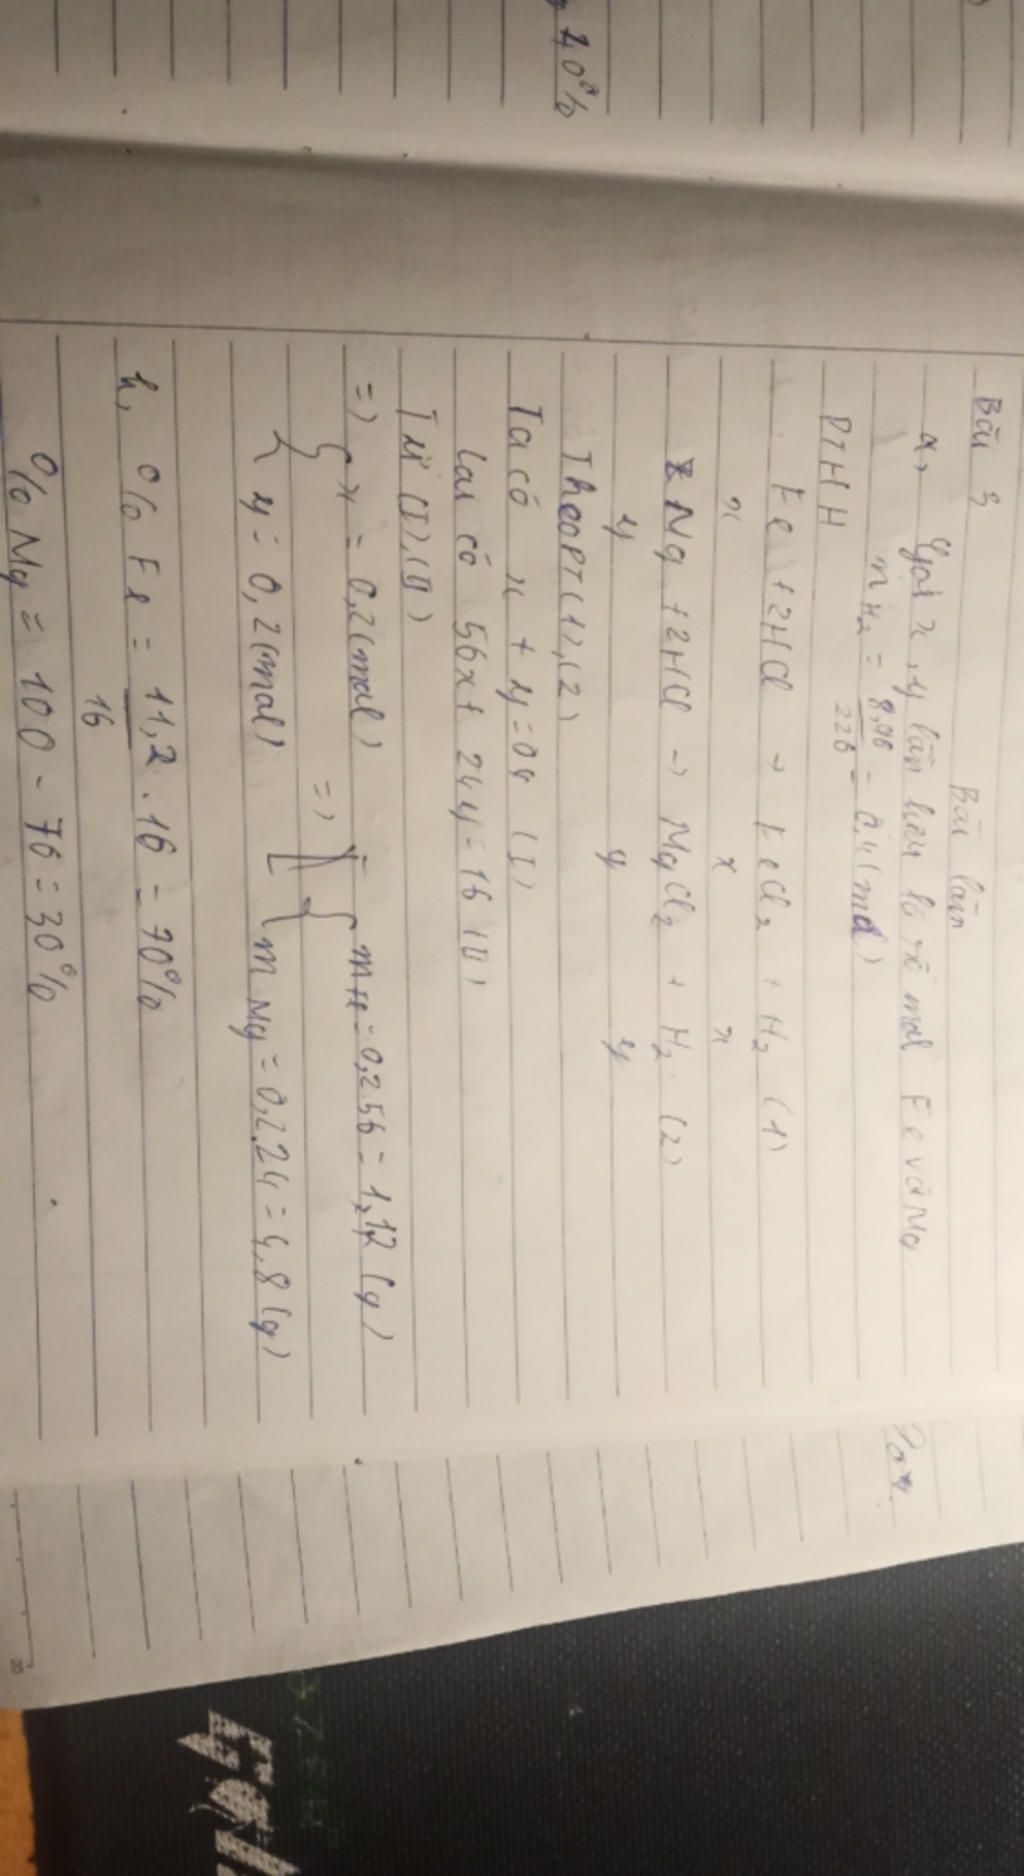 40%
Bài 3
Bài làm
a, Gọi x, y lần lượt là số mol Fe và Mg
n H2 = 8,96 = 0,4 (mol)
22,4
PTHH
Fe + 2HCl → FeCl2 + H2 (1)
x x x
Mg + 2HCl → MgCl2 + H2 (2)
y y y
Theo PT (1), (2)
Ta có x + y = 04 (I)
lại có 56x + 24y = 16 (II)
Từ (I), (II)
=> { x = 0,2 (mol) => { mFe = 0,2.56 = 1,12 (g)
{ y = 0,2 (mol) { m Mg = 0,2.24 = 4,8 (g)
b, % Fe = 11,2 . 16 = 70%
16
% Mg = 100 - 76 = 30%